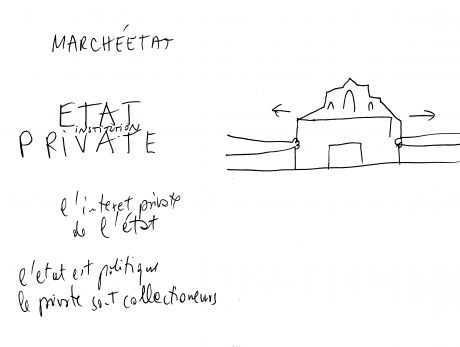 MARCHÉÉTAT
ETAT
INSTITUTIONS
PRIVATE
l'interet private
de l'état
l'etat est politique
le private sont collectioneurs